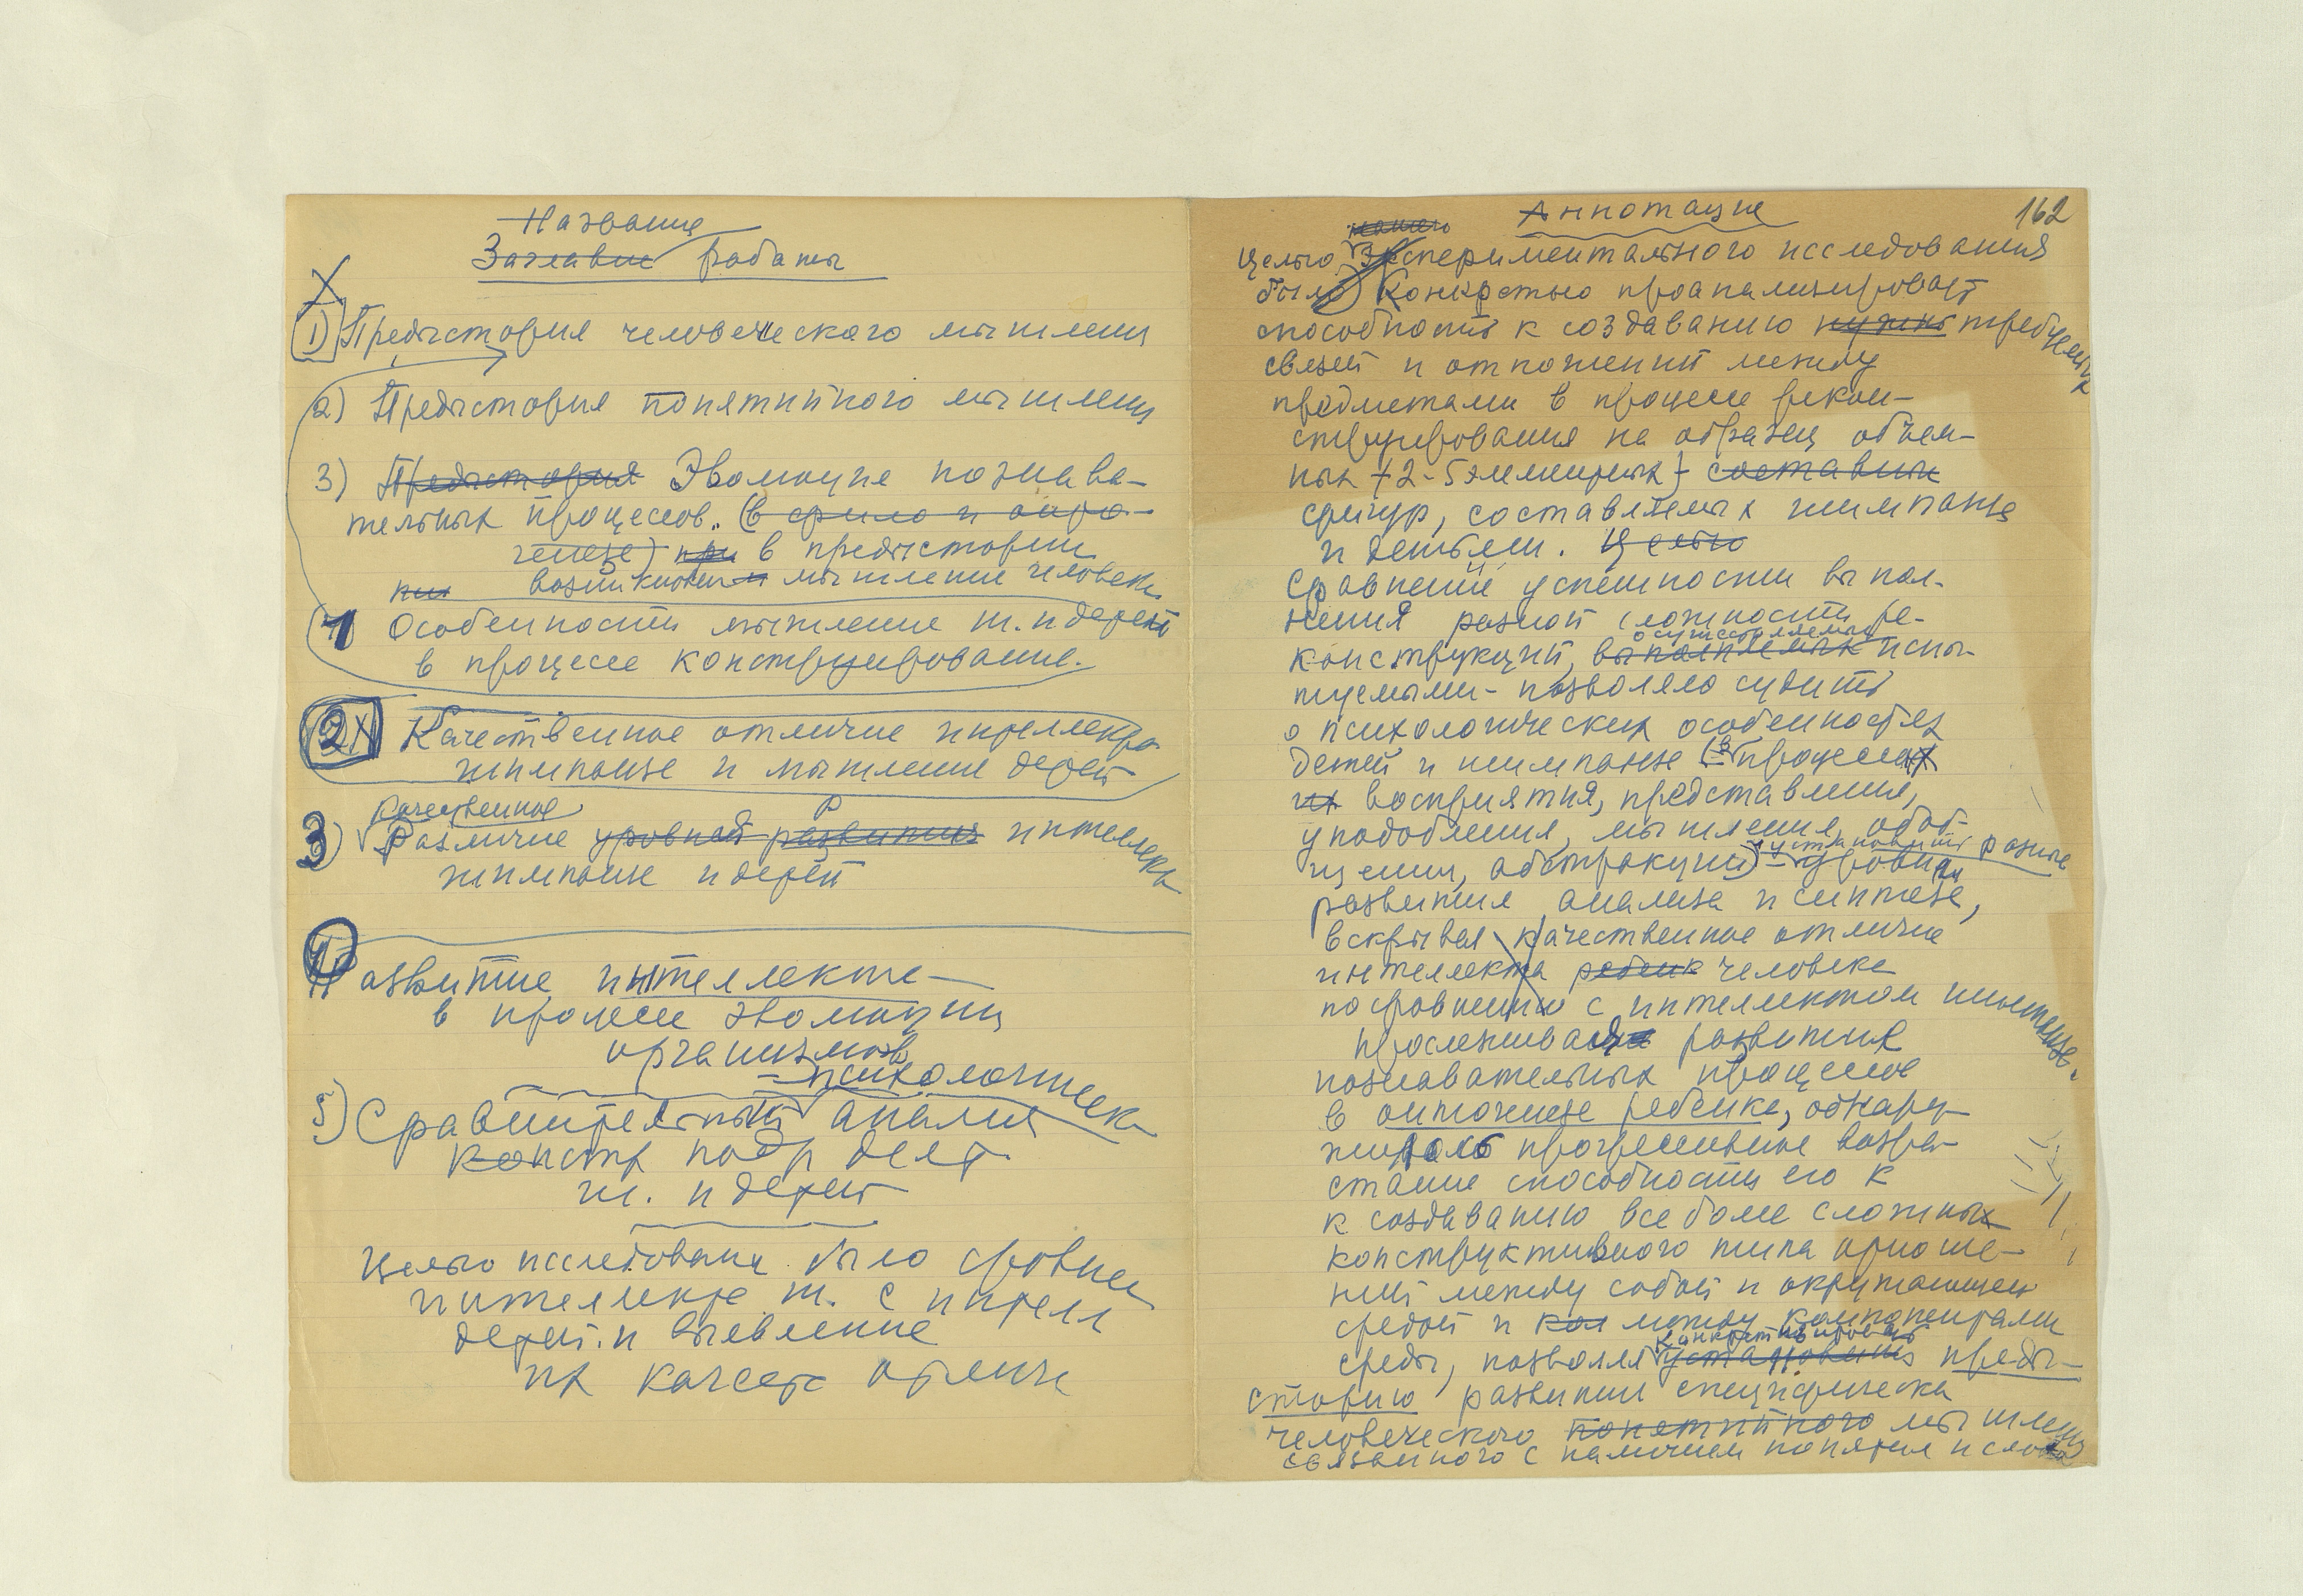 Название
Заглавие работы
1) Предыстория человеческого мышления
2) Предыстория понятийного мышления
3) Предыстория Эволюция познава-
тельных процессов. (в фило и онто-
генезе) при в предыстории
возникновения мышление человека
1 Особенности мышление ш. и детей
в процессе конструирование.
2 Качественное отличие интеллекта
шимпанзе и мышление детей
качественное
3) Различие уровней развития интеллекта
шимпанзе и детей
Развитие интеллекта
в процессе эволюции
организмов
психологическ
5) Сравнительный анализ
констр деят.
ш. и детей
Целью исследования было сравнен
интеллекта ш. с интелл
детей и выявление
их качеств отличи
Аннотация
162
нашего
Целью экспериментального исследования
было Конкретно проанализировать
способность к создаванию нужных требуемых
связей и отношений между
предметами в процессе рекон-
струирования на образец объем-
ных 2-5 элементных составных
фигур, составляемых шимпанзе
и детьми. Целью
Сравнение успешности выпол-
нения разной сложности ре-
осуществляемых
конструкций, выполняемых испы-
туемыми - позволяло судить
о психологических особенностях
детей и шимпанзе (в процессах
их восприятия, представления,
уподобления, мышления, обоб-
установить разные
щения, абстракции) - уровни
развития анализа и синтеза,
вскрывая качественное отличие
интеллекта ребенк человека
по сравнению с интеллектом шимпанзе.
Прослеживая развития
познавательных процессов
в онтогенезе ребенка, обнару-
жилось прогрессивное возра-
стание способности его к
к создаванию все более сложных
конструктивного типа отноше-
ний между собой и окружающей
средой и между компонентами
конкретизировать
среды, позволяя установить преды-
сторию развития специфически
человеческого понятийного мышления
связанного с наличием понятия и слова